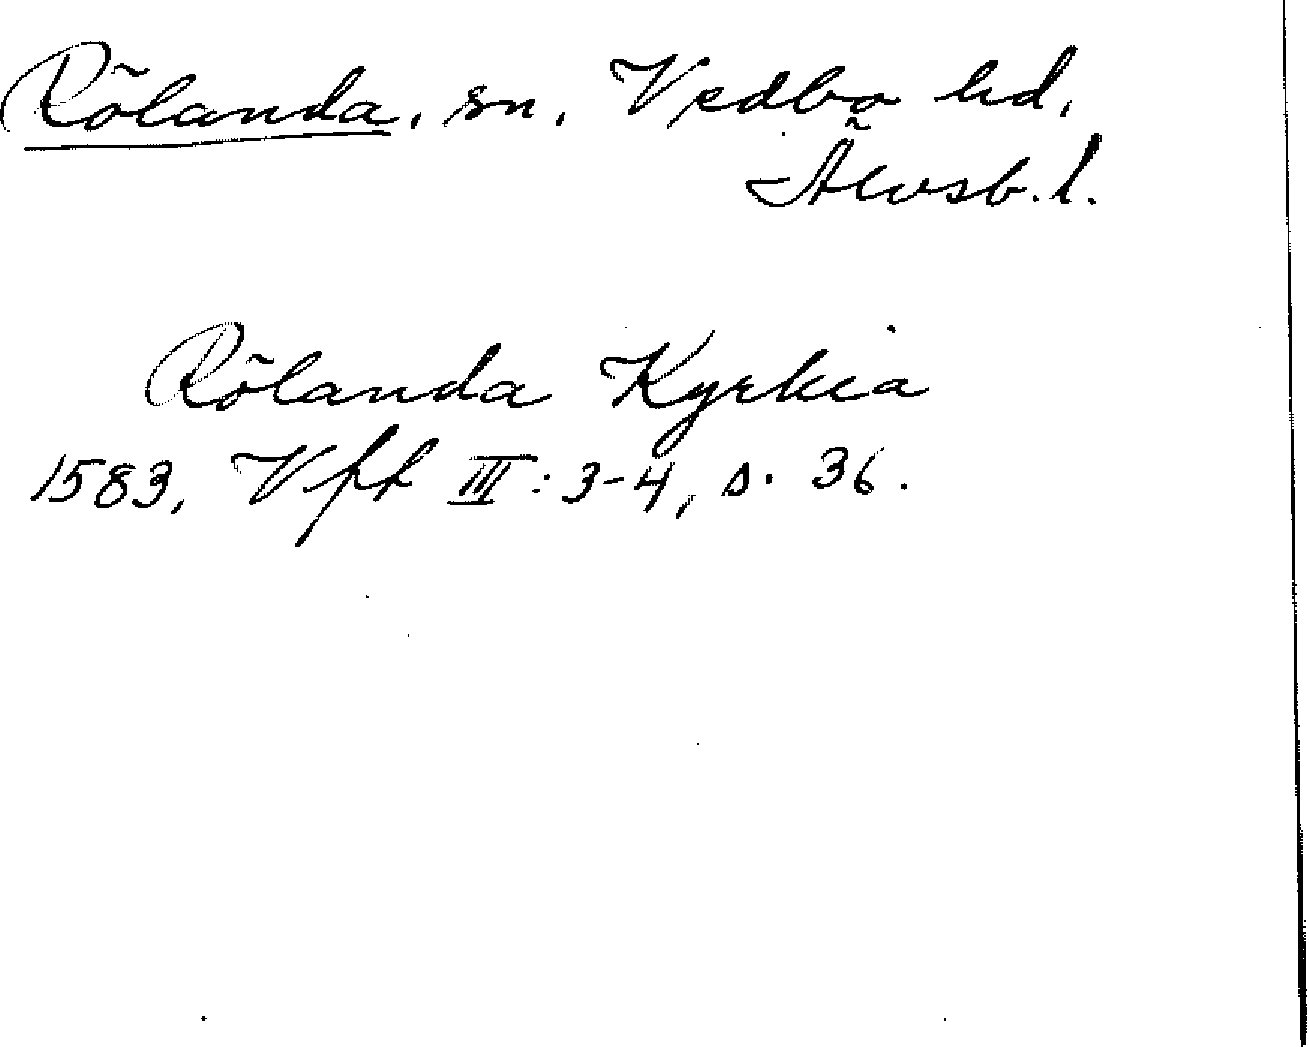 Rölanda, sn, Vedbo hd,
Älvsb. l.
Rölanda Kyrkia
1583, Vfft III: 3-4, s. 36.